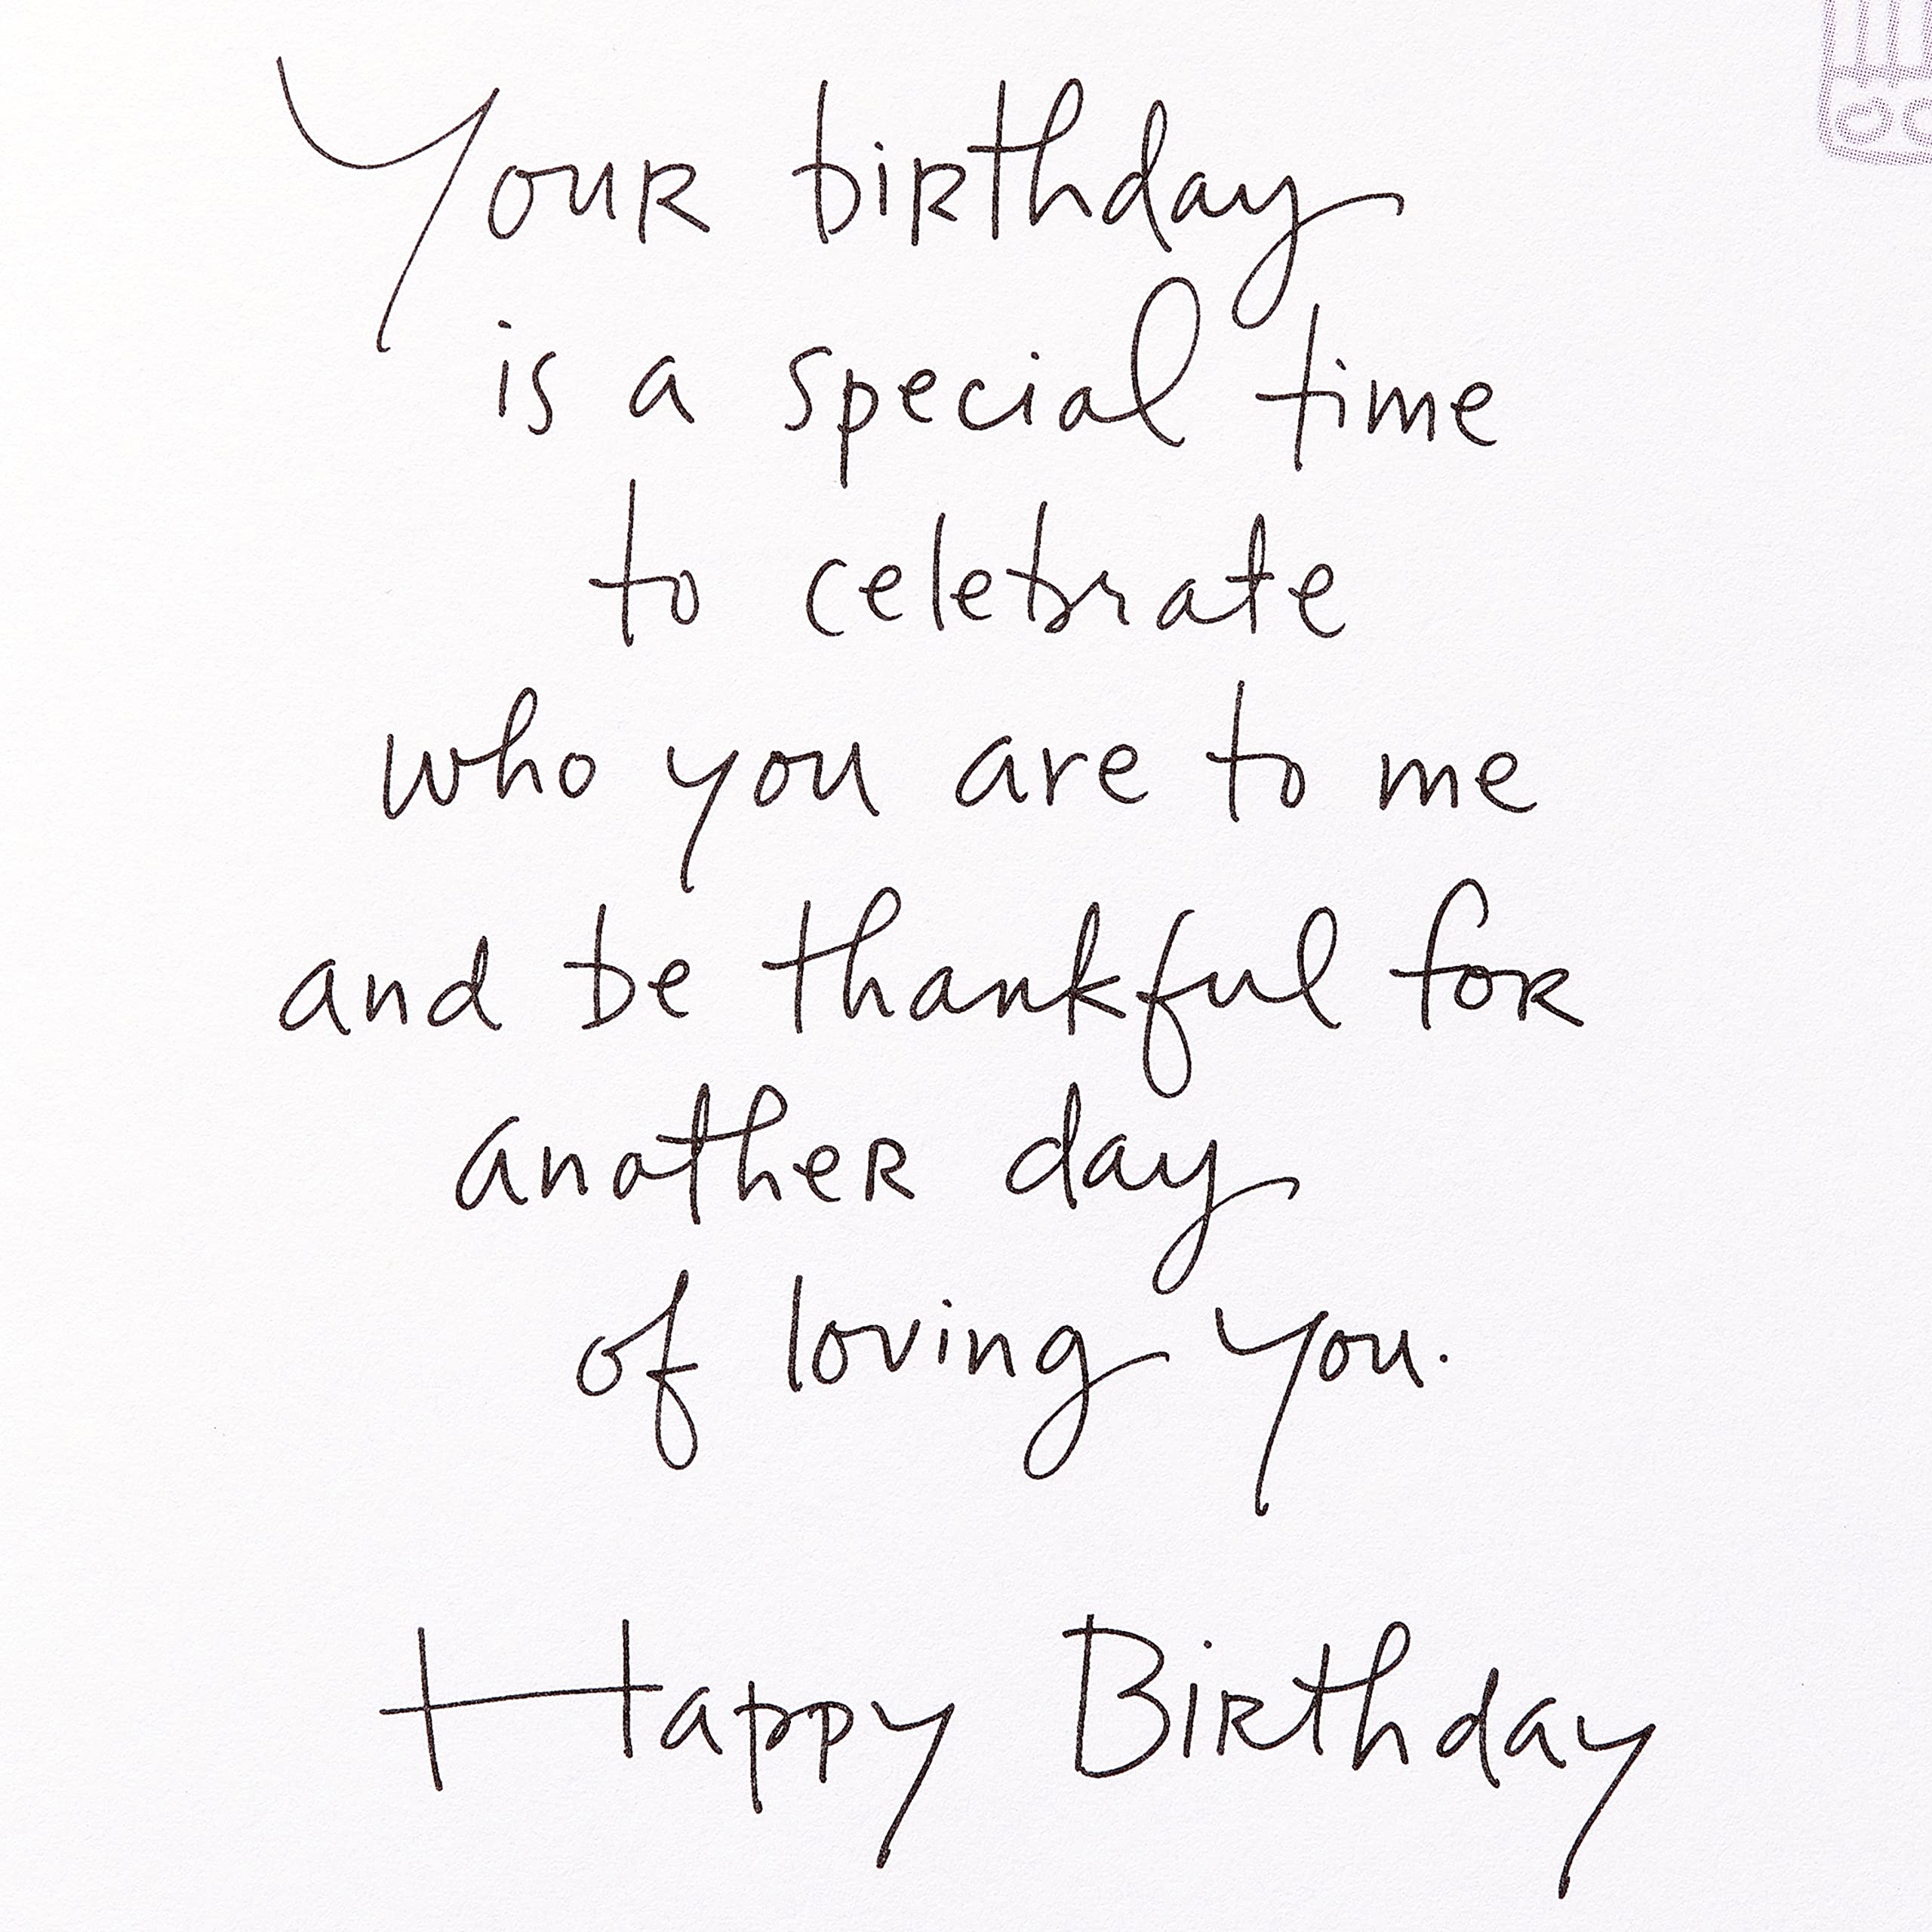 Your birthday
is a special time
to celebrate
who you are to me
and be thankful for
another day
of loving you.
Happy Birthday